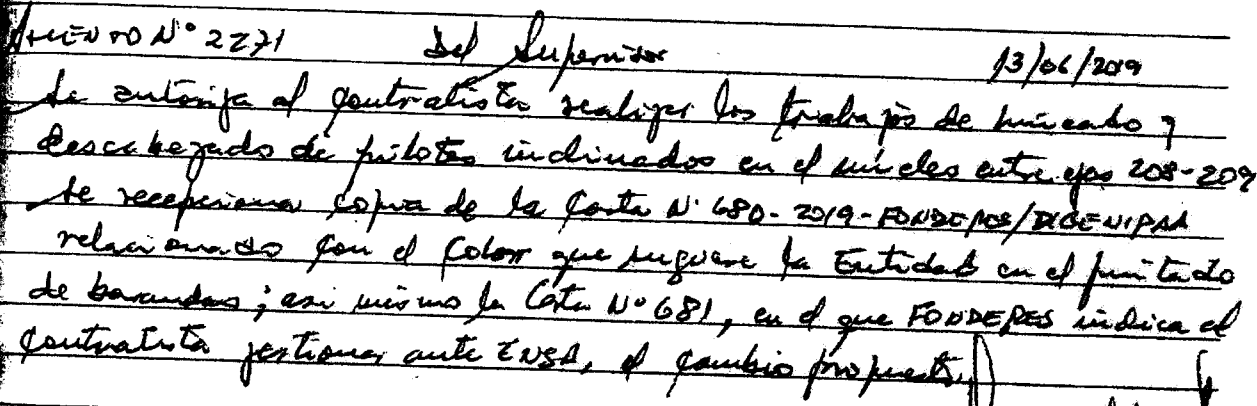 ASIENTO N° 2271 Del Supervisor 13/06/2019
Se autoriza al contratista realizar los trabajos de hincado y
descabezado de pilotes inclinados en el muelle entre ejes 208-209
Se recepciona copia de la Carta N° 680-2019-FONDEPES/DIGENIPAA
relacionado con el color que sugiere la Entidad en el pintado
de barandas; asi mismo la Carta N° 681, en el que FONDEPES indica al
contratista gestionar ante ENSA, el cambio propuesto.